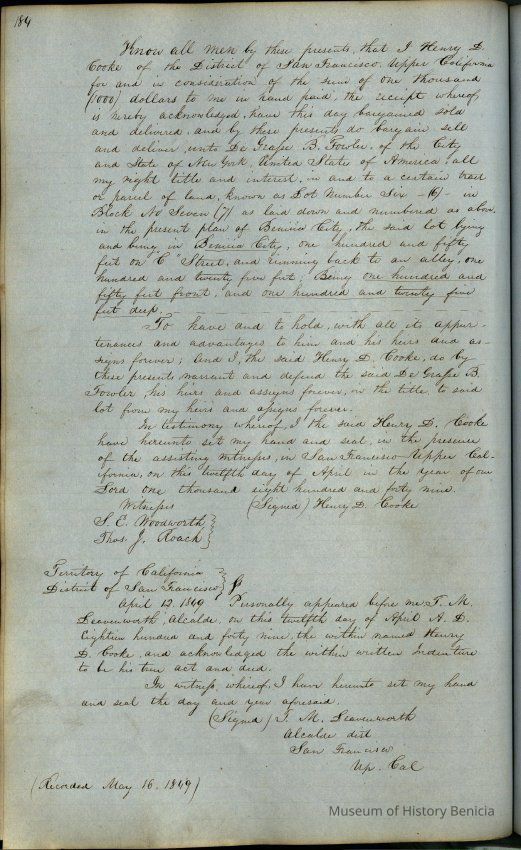 184
Know all men by these presents, that I Henry D.
Cooke of the District of San Francisco, Upper California
for and in consideration of the sum of one thousand
(1000) dollars to me in hand paid, the receipt whereof,
is hereby acknowledged, have this day bargained sold
and delivered, and by these presents, do bargain, sell
and deliver, unto De Grasse B. Fowler, of the City
and State of New York, United State of America, all
my right title and interest, in and to a certain tract
or parcel of land, known as Lot Number Six -(6)- in
Block No Seven (7) as laid down and numbered as above
in the present plan of Benicia City, the said lot lying
and being in Benicia City, one hundred and fifty
feet on "C" Street, and running back to an alley, one
hundred and twenty five feet, Being one hundred and
fifty feet front, and one hundred and twenty-five
feet deep.
To have and to hold, with all its appur-
tenances and advantages to him and his heirs and as-
signs forever; And I, the said Henry D. Cooke, do by
these presents, warrant and defend the said De Grasse B.
Fowler, his heirs and assigns forever, in the title to said
lot from my heirs and assigns forever.
In testimony whereof, I the said Henry D. Cooke
have hereunto set my hand and seal, in the presence
of the assisting witnesses, in San Francisco Upper Cal-
ifornia, on this twelfth day of April in the year of our
Lord one thousand eight hundred and forty nine.
Witnesses (Signed) Henry D. Cooke
S. E. Woodworth
Thos. J. Roach
Territory of California
District of San Francisco
April 12. 1849 Personally appeared before me T. M.
Leavenworth, Alcalde, on this twelfth day of April A. D.
Eighteen hundred and forty nine, the within named Henry
D. Cooke, and acknowledged the within written Indenture
to be his true act and deed.
In witness, whereof, I have hereunto set my hand
and seal the day and year aforesaid.
(Signed) T. M. Leavenworth
Alcalde dist
San Francisco
Up. Cal
(Recorded May 16. 1849)
Museum of History Benicia